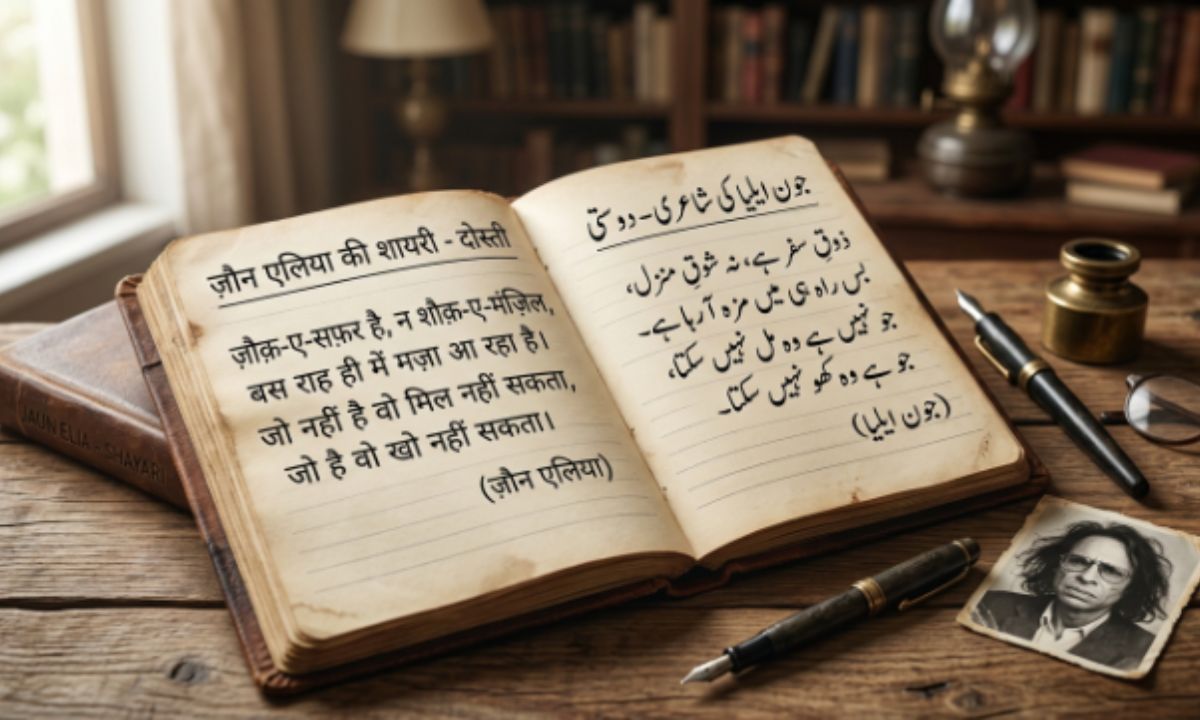 ज़ौन एलिया की शायरी - दोस्ती
ज़ौक़-ए-सफ़र है, न शौक़-ए-मंज़िल,
बस राह ही में मज़ा आ रहा है।
जो नहीं है वो मिल नहीं सकता,
जो है वो खो नहीं सकता।
(ज़ौन एलिया)
جون ایلیا کی شاعری - دوستی
ذوقِ سفر ہے، نہ شوقِ منزل،
بس راہ ہی میں مزہ آ رہا ہے۔
جو نہیں ہے وہ مل نہیں سکتا،
جو ہے وہ کھو نہیں سکتا۔
(جون ایلیا)
JAUN ELIA - SHAYARI